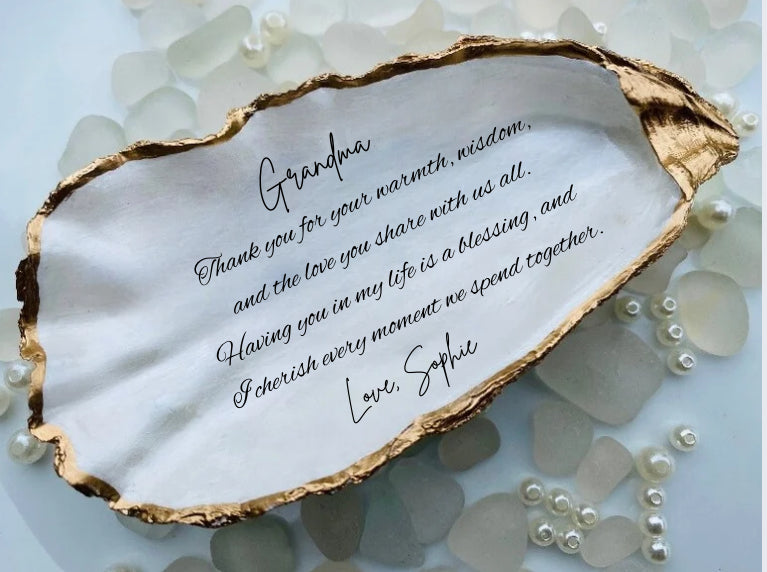 Grandma
Thank you for your warmth, wisdom,
and the love you share with us all.
Having you in my life is a blessing, and
I cherish every moment we spend together.
Love, Sophie